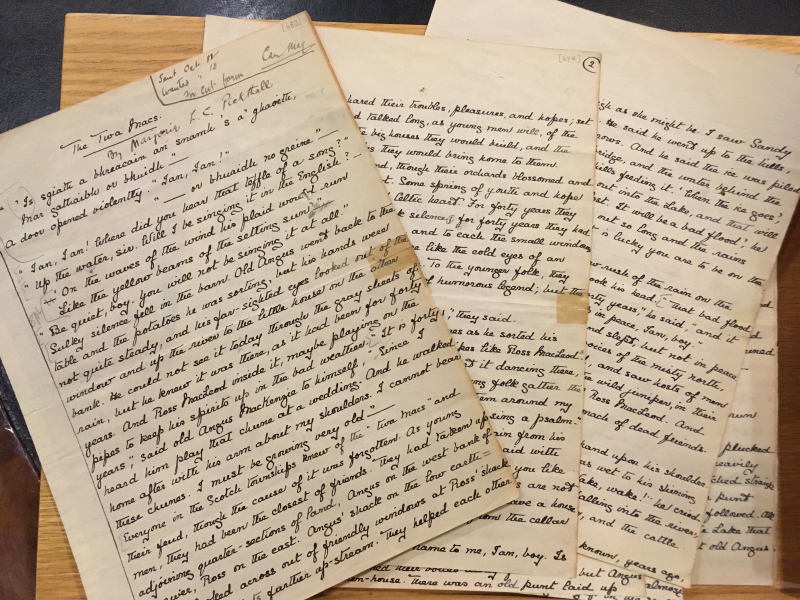 [683]
Sent Oct 18
Wanted " 18
in cut form
Can Mag
The Twa Macs.
By Marjorie L. C. Pickthall
"Is sgiate a bhreacain an snamh 's a' ghaoith,
mar gathaibh or bhuidh —
A door opened violently. "Ian, Ian!"
" — or bhuidh no greine" —
"Ian, Ian! Where did you hear that teffle of a song?"
"Up the water, sir. Will I be singing it in the English? —
"'On the waves of the wind his plaid would run
Like the yellow beams of the setting sun,'"
"Be quiet, boy. You will not be singing it at all."
Sulky silence fell in the barn. Old Angus went back to the
table and the potatoes he was sorting, but his hands were
not quite steady, and his far-sighted eyes looked out of the
window and up the river to the little house on the other
bank. He could not see it today through the gray sheets of
rain, but he knew it was there, as it had been for forty
years. And Ross MacLeod inside it, maybe playing on the
pipes to keep his spirits up in the bad weather. "It is forty
years," said old Angus MacKenzie to himself, "since I
heard him play that chune at a wedding. And he walked
home after with his arm about my shoulders. I cannot bear
these chunes. I must be growing very old" —
Everyone in the Scotch townships knew of the "twa macs" and
their feud, though the cause of it was forgotten. As young
men, they had been the closest of friends. They had taken up
adjoining quarter-sections of land, Angus on the west bank of
river, Ross on the east. Angus' shack on the low earth =
looked across out of friendly windows at Ross' shack
farther up-stream. They helped each other
[684]
2
shared their troubles, pleasures, and hopes; set
d talked long, as young men will, of the
e big houses they would build, and the
s they would bring home to them.
nd, though their orchards blossomed and
t. Some spring of youth and hope
Celtic heart. For forty years they
silence; for forty years they had
and to each the small windows
e like the cold eyes of an
To the younger folk, they
f humorous legend; but the
," they said.
es as he sorted his
kes like Ross MacLeod"
it dancing there,
ng folk gather the
em around my
sing a psalm."
in from his
aid with
you like
s are not
ave a house
om the cellar
name to me, Ian, boy. Is
en-house. There was an old punt laid up
gh as she might be. I saw Sandy
. He said he went up to the hills
nows. And he said the ice was piled
edge, and the water behind the
hills feeding it. 'When the ice goes,'
out into the Lake, and that will
et. It will be a bad flood,' he
out so long and the rains
is lucky you are to be on the
rush of the rain on the
ook his head. "That bad flood
ty years" he said, "and it
in peace, Ian, boy."
nd slept, but not in peace.
oices of the misty north,
, and saw hosts of men
e wild juniper, in their
Ross MacLeod. And
mach of dead friends.
hand upon his shoulder
as wet to his shining
ake, wake!" he cried.
alling into the river,
, and the cattle
known, years ago,
but Angus
plucked
eavily
ched straight
punt
followed. All
e Lake that
old Angus.
almost